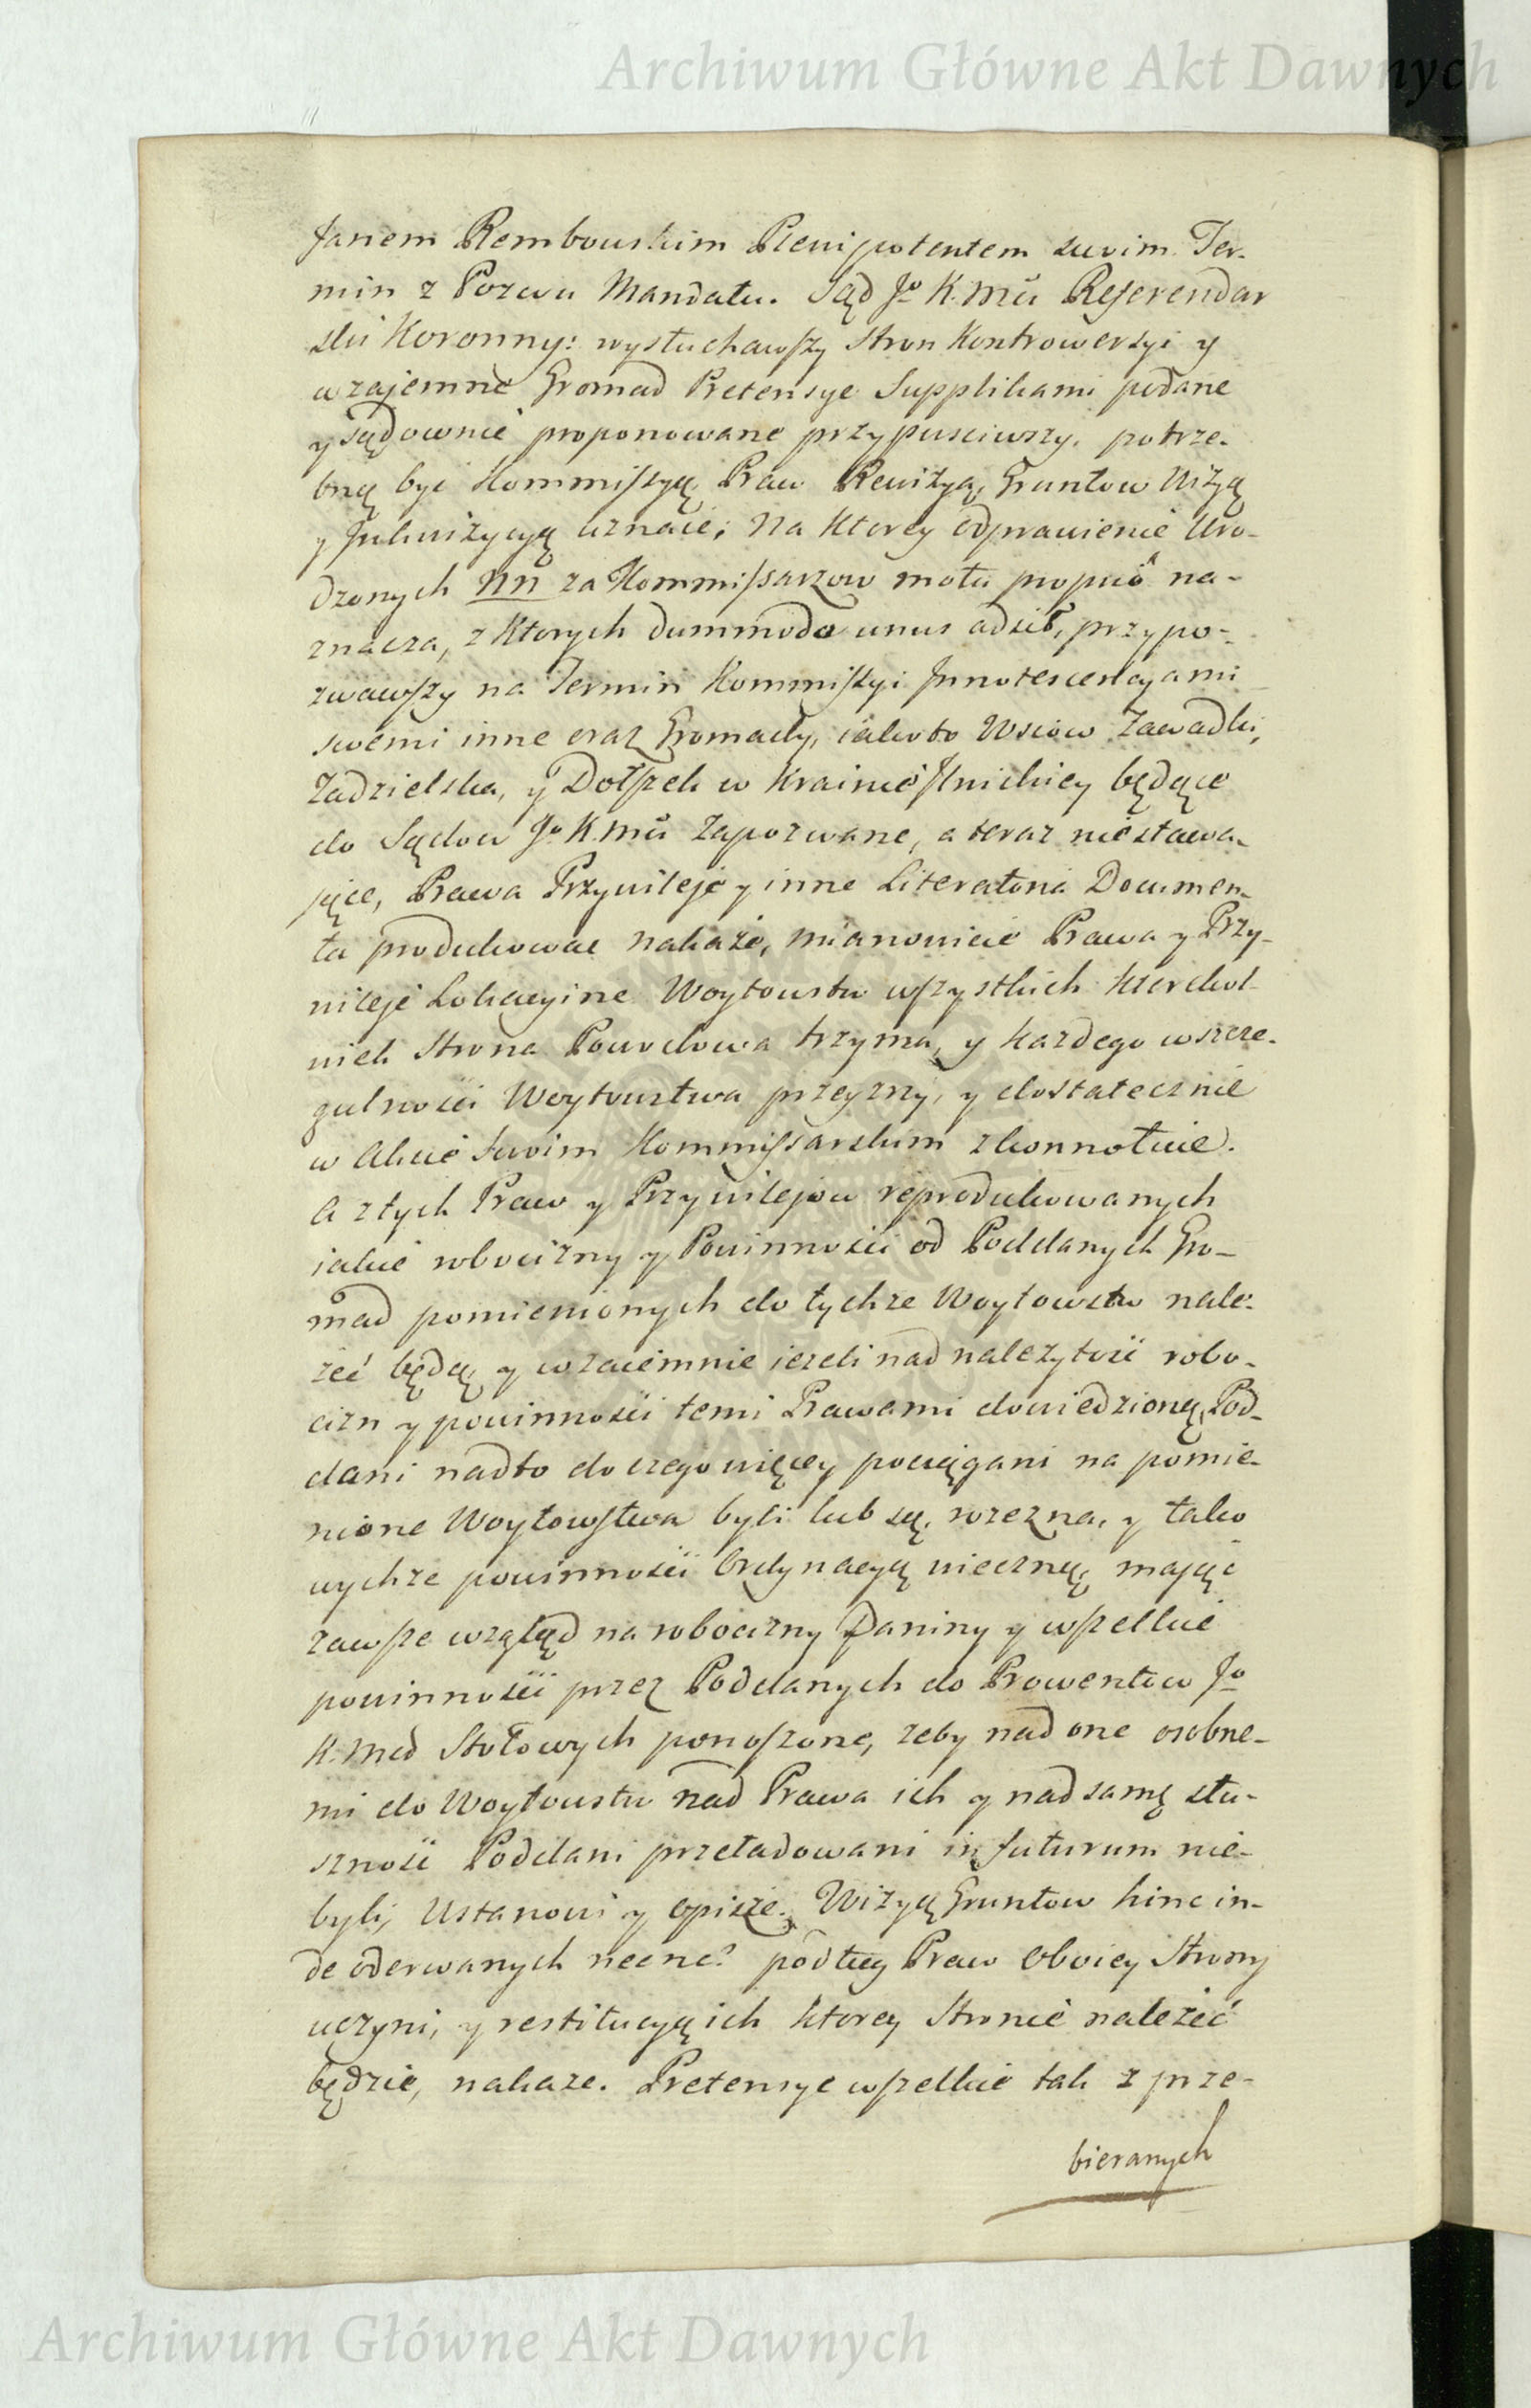 Archiwum Główne Akt Dawnych
Janem Rembowskim Plenipotentem swoim. Ter-
min z Pozwu Mandatu. Sąd Jo K. Mci Referendar
ski Koronny: wysłuchawszy Stron Kontrowersyi y
wzajemne Gromad Pretensye Supplikami podane
y sądownie proponowane przypusciwszy, potrze-
bną byc Kommissyą, Praw Rewizyą, Gruntow Wizyą
y Inkwizycyą uznaie; Na ktorey odprawienie Uro-
dzonych NN za Kommissarzow motu proprio na-
znacza, z ktorych dummodo unus adsit, przypo-
zwawszy na Termin Kommissyi Innotescencyami
swemi inne oraz Gromady, iako to Wsiow Zawadki,
Zadzielska, y Dołszek w Krainie Ilnickiey będące
do Sądow Jo K. Mci zapozwane, a teraz niestawa-
jące, Prawa Przywileje y inne Literatoria Documen-
ta produkowac nakaże, mianowicie Prawa y Przy-
wileje Lokacyine Woytowstw wszystkich ktorekol-
wiek Strona Powodowa trzyma, y każdego wszcze-
gulności Woytowstwa przeyzrzy, y dostatecznie
w Akcie swoim Kommissarskim zkonnotuie.
A z tych Praw y Przywilejow reprodukowanych
iakie robocizny y Powinności od Poddanych Gro-
mad pomienionych do tychże Woytowstw nale-
żeć będą, y wzaiemnie ieżeli nad należytość robo-
cizn y powinności temi Prawami dowiedzioną, Pod-
dani nadto do czego więcey pociągani na pomie-
nione Woytowstwa byli lub są, rozezna, y tako
wychże powinności Ordynacyą wieczną, mając
zawsze wzgląd na robocizny Daniny y wszelkie
powinności przez Poddanych do Prowentow Jo
K. Mci Stołowych ponoszone, żeby nad one osobne-
mi do Woytowstw nad Prawa ich y nad samą słu-
szność Poddani przeładowani in futurum nie-
byli, Ustanowi y opisze. Wizyą Gruntow hinc in-
de oderwanych necne? podług Praw oboiey Strony
uczyni, y restitucyą ich ktorey Stronie należeć
będzie, nakaże. Pretensye wszelkie tak z prze-
bieranych
Archiwum Główne Akt Dawnych